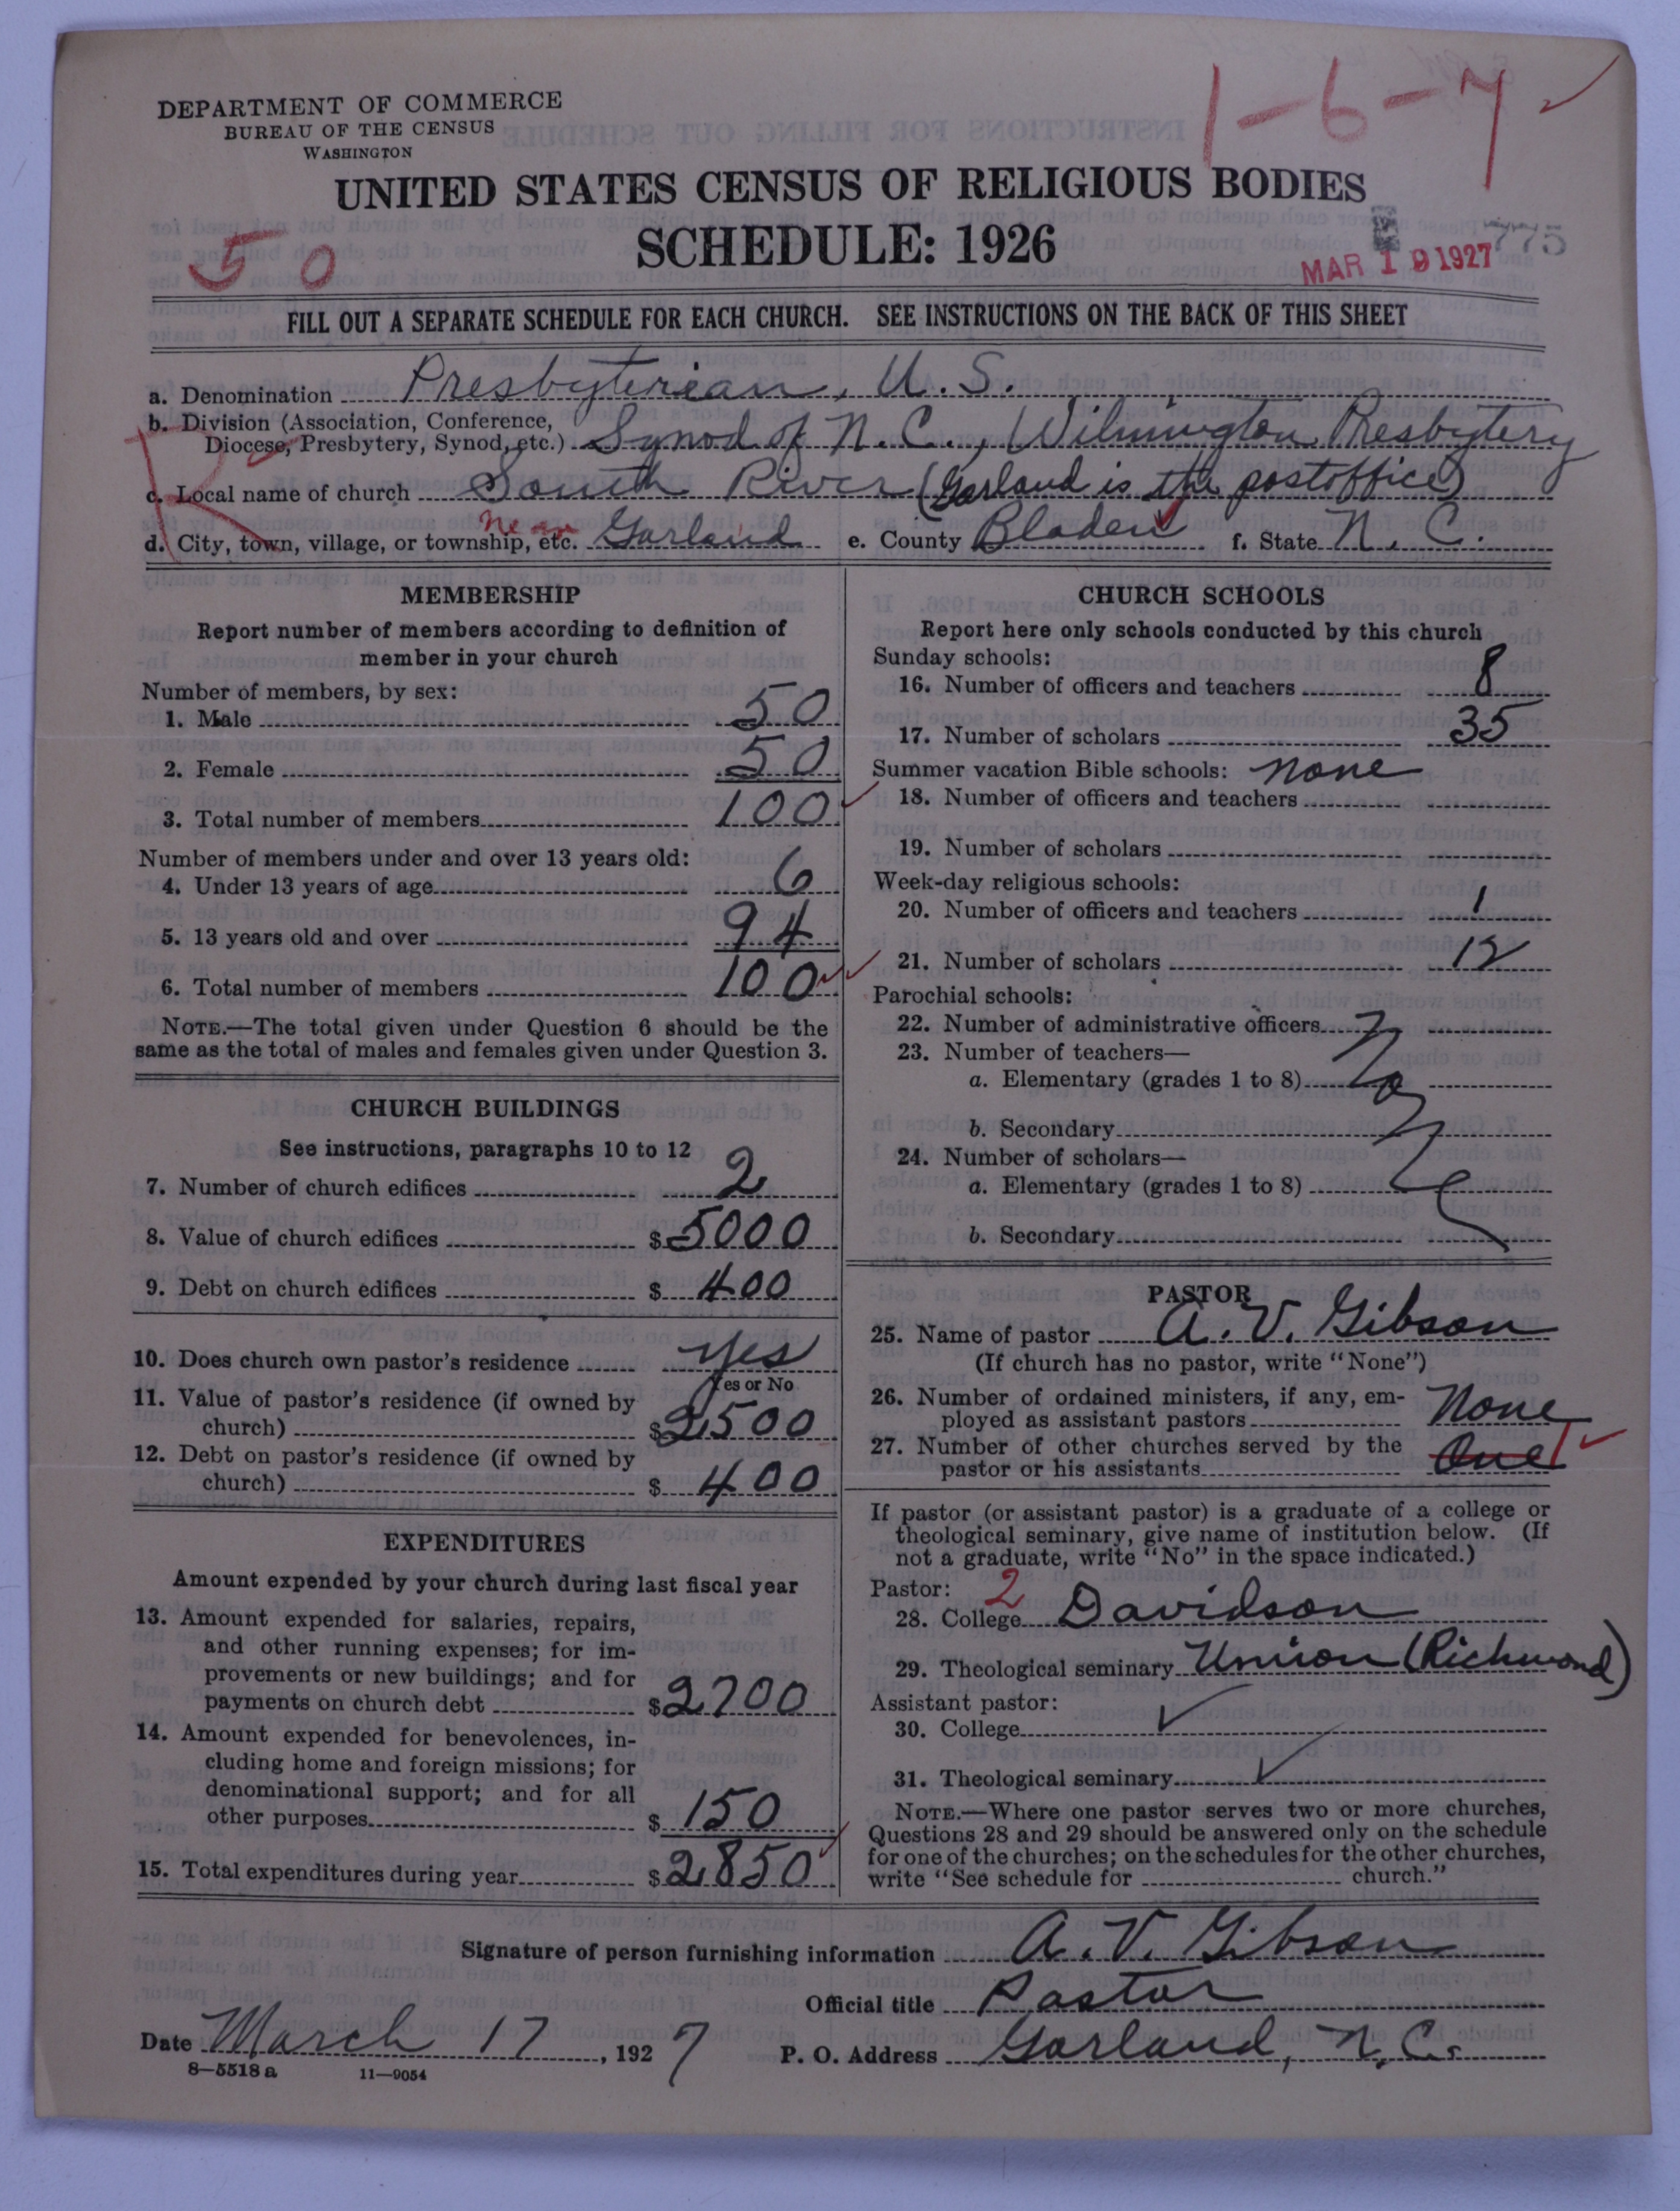 1-6-7 ✓
DEPARTMENT OF COMMERCE
BUREAU OF THE CENSUS
WASHINGTON
UNITED STATES CENSUS OF RELIGIOUS BODIES
SCHEDULE: 1926
50
775
MAR 19 1927
FILL OUT A SEPARATE SCHEDULE FOR EACH CHURCH. SEE INSTRUCTIONS ON THE BACK OF THIS SHEET
a. Denomination Presbyterian, U.S.
b. Division (Association, Conference,
Diocese, Presbytery, Synod, etc.) Synod of N.C., Wilmington Presbytery
c. Local name of church South River (Garland is the postoffice)
d. City, town, village, or township, etc. near Garland e. County Bladen f. State N. C.
MEMBERSHIP
Report number of members according to definition of
member in your church
Number of members, by sex:
1. Male 50
2. Female 50
3. Total number of members 100 ✓
Number of members under and over 13 years old:
4. Under 13 years of age 6
5. 13 years old and over 94
6. Total number of members 100 ✓✓
NOTE.—The total given under Question 6 should be the
same as the total of males and females given under Question 3.
CHURCH BUILDINGS
See instructions, paragraphs 10 to 12
7. Number of church edifices 2
8. Value of church edifices $5000
9. Debt on church edifices $ 400
10. Does church own pastor's residence yes
Yes or No
11. Value of pastor's residence (if owned by
church) $2500
12. Debt on pastor's residence (if owned by
church) $ 400
EXPENDITURES
Amount expended by your church during last fiscal year
13. Amount expended for salaries, repairs,
and other running expenses; for im-
provements or new buildings; and for
payments on church debt $2700
14. Amount expended for benevolences, in-
cluding home and foreign missions; for
denominational support; and for all
other purposes $ 150
15. Total expenditures during year $2850 ✓
CHURCH SCHOOLS
Report here only schools conducted by this church
Sunday schools:
16. Number of officers and teachers 8
17. Number of scholars 35
Summer vacation Bible schools: none
18. Number of officers and teachers
19. Number of scholars
Week-day religious schools:
20. Number of officers and teachers 1
21. Number of scholars 12
Parochial schools:
22. Number of administrative officers
23. Number of teachers—
a. Elementary (grades 1 to 8) None
b. Secondary
24. Number of scholars—
a. Elementary (grades 1 to 8)
b. Secondary
PASTOR
25. Name of pastor A. V. Gibson
(If church has no pastor, write "None")
26. Number of ordained ministers, if any, em-
ployed as assistant pastors None
27. Number of other churches served by the
pastor or his assistants One 1 ✓
If pastor (or assistant pastor) is a graduate of a college or
theological seminary, give name of institution below. (If
not a graduate, write "No" in the space indicated.)
Pastor: 2
28. College Davidson
29. Theological seminary Union (Richmond)
Assistant pastor:
30. College ✓
31. Theological seminary ✓
NOTE.—Where one pastor serves two or more churches,
Questions 28 and 29 should be answered only on the schedule
for one of the churches; on the schedules for the other churches,
write "See schedule for church."
Signature of person furnishing information A. V. Gibson
Official title Pastor
Date March 17, 1927 P. O. Address Garland, N.C.
8—5518 a 11—9054